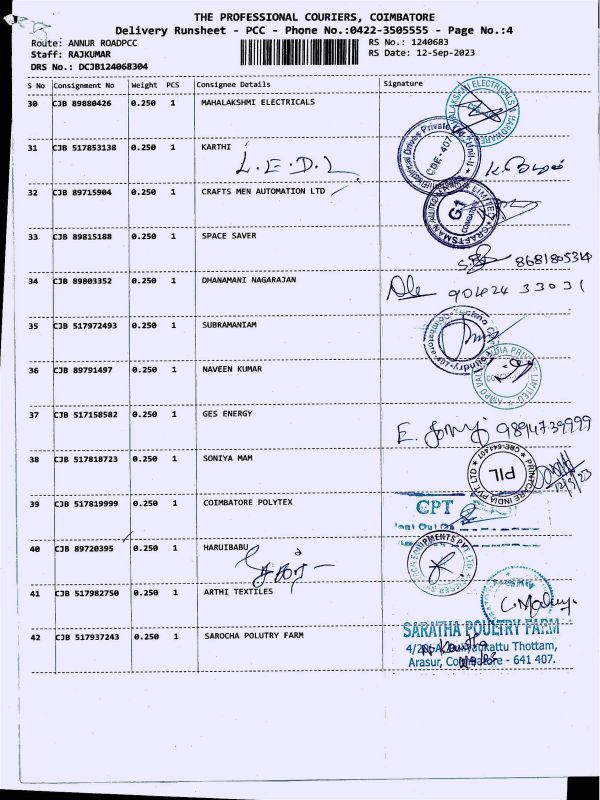 THE PROFESSIONAL COURIERS, COIMBATORE
Delivery Runsheet - PCC - Phone No.:0422-3505555 - Page No.:4
Route: ANNUR ROADPCC RS No.: 1240683
Staff: RAJKUMAR RS Date: 12-Sep-2023
DRS No.: DCJB124068304
S No Consignment No Weight PCS Consignee Details Signature
30 CJB 89880426 0.250 1 MAHALAKSHMI ELECTRICALS
31 CJB 517853138 0.250 1 KARTHI
L.E.D.L
CDE-407
32 CJB 89715904 0.250 1 CRAFTS MEN AUTOMATION LTD
G1
33 CJB 89815188 0.250 1 SPACE SAVER
8681805314
34 CJB 89803352 0.250 1 DHANAMANI NAGARAJAN
90424 33031
35 CJB 517972493 0.250 1 SUBRAMANIAM
36 CJB 89791497 0.250 1 NAVEEN KUMAR
37 CJB 517158582 0.250 1 GES ENERGY
E. 9894739999
38 CJB 517818723 0.250 1 SONIYA MAM
PRINTCARE INDIA PVT. LTD
PIL
12/9/23
39 CJB 517819999 0.250 1 COIMBATORE POLYTEX
CPT
40 CJB 89720395 1 0.250 1 HARUIBABU
41 CJB 517982750 0.250 1 ARTHI TEXTILES
42 CJB 517937243 0.250 1 SAROCHA POLUTRY FARM
SARATHA POULTRY FARM
Thottam,
Arasur, Coimbatore - 641 407.